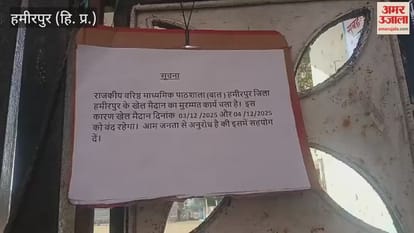 हमीरपुर (हि. प्र.)
अमर उजाला
amarujala.com
सूचना
राजकीय वरिष्ठ माध्यमिक पाठशाला (बाल) हमीरपुर जिला
हमीरपुर के खेल मैदान का मुरम्मत कार्य चला है। इस
कारण खेल मैदान दिनांक 03/12/2025 और 04/12/2025
को बंद रहेगा। आम जनता से अनुरोध है की इसमे सहयोग
दें।